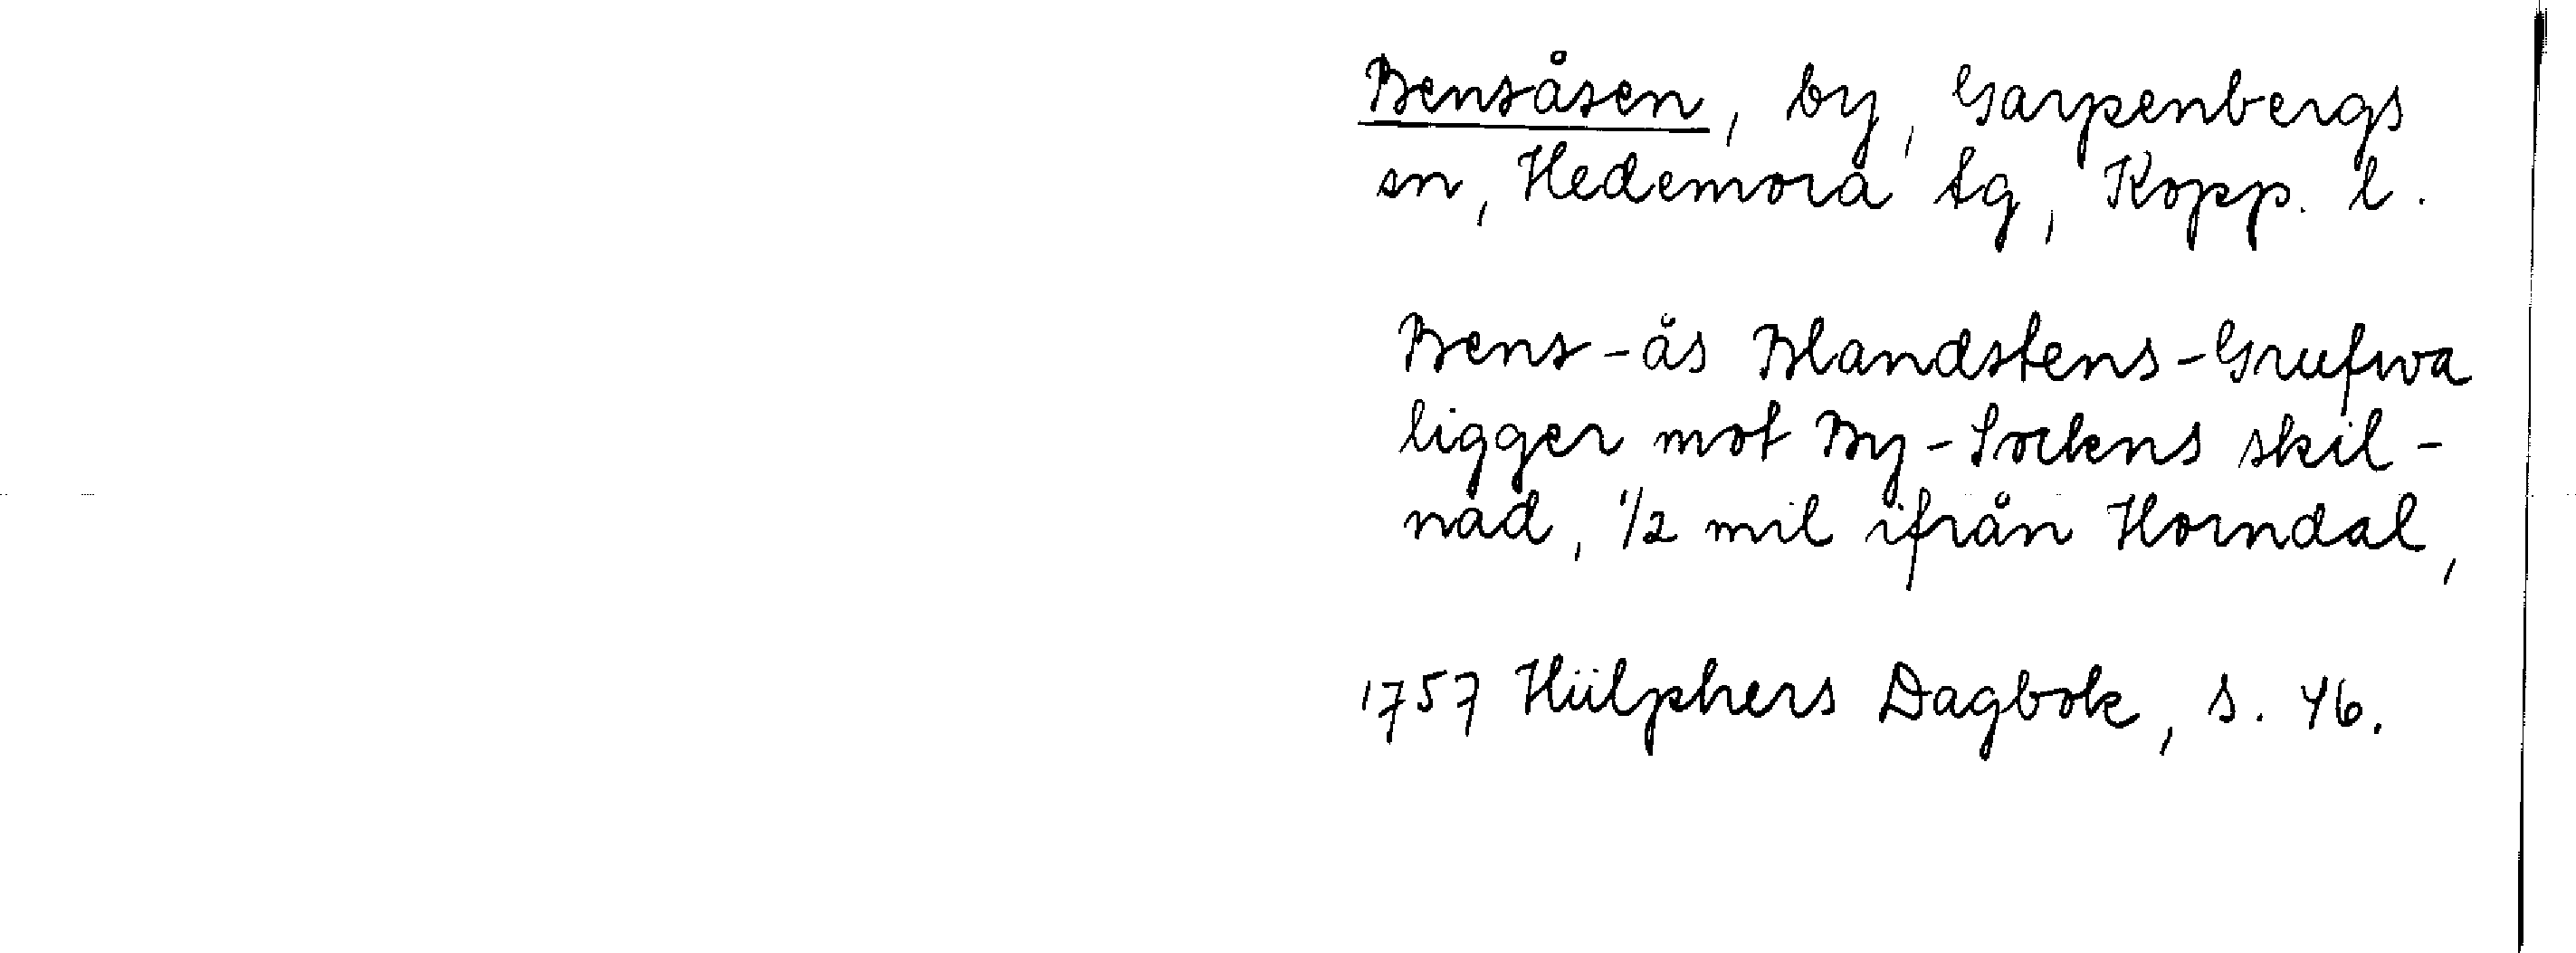 Bensåsen, by, Garpenbergs
sn, Hedemora tg, Kopp. l.
Bens-ås Blandstens-Grufwa
ligger mot By-Sockens skil-
nad, 1/2 mil ifrån Horndal,
1757 Hülphers Dagbok, s. 46.